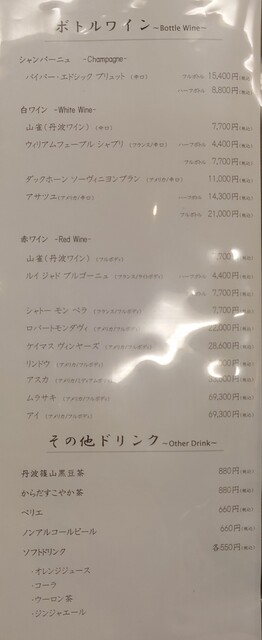 ボトルワイン～Bottle Wine～
シャンパーニュ -Champagne-
パイパー・エドシック ブリュット (辛口) フルボトル 15,400円(税込)
ハーフボトル 8,800円(税込)
白ワイン -White Wine-
山雀(丹波ワイン) (辛口) 7,700円(税込)
ウィリアムフェーブル シャブリ (フランス/辛口) ハーフボトル 4,400円(税込)
フルボトル 7,700円(税込)
ダックホーン ソーヴィニヨンブラン (アメリカ/辛口) 11,000円(税込)
アサツユ(アメリカ/辛口) ハーフボトル 14,300円(税込)
フルボトル 21,000円(税込)
赤ワイン -Red Wine-
山雀(丹波ワイン) (フルボディ)
ルイ ジャド ブルゴーニュ (フランス/ライトボディ) ハーフボトル 4,400円
7,700円(税込)
シャトー モン ペラ (フランス/フルボディ)
ロバートモンダヴィ (アメリカ/フルボディ)
ケイマス ヴィンヤーズ (アメリカ/フルボディ) 28,600円(税込)
リンドウ (アメリカ/フルボディ)
アスカ
ムラサキ (アメリカ/フルボディ) 69,300円(税込)
アイ (アメリカ/フルボディ) 69,300円(税込)
その他ドリンク～Other Drink～
丹波篠山黒豆茶 880円(税込)
からだすこやか茶 880円(税込)
ペリエ 660円(税込)
ノンアルコールビール 660円(税込)
ソフトドリンク 各550円(税込)
・オレンジジュース
・コーラ
・ウーロン茶
・ジンジャエール